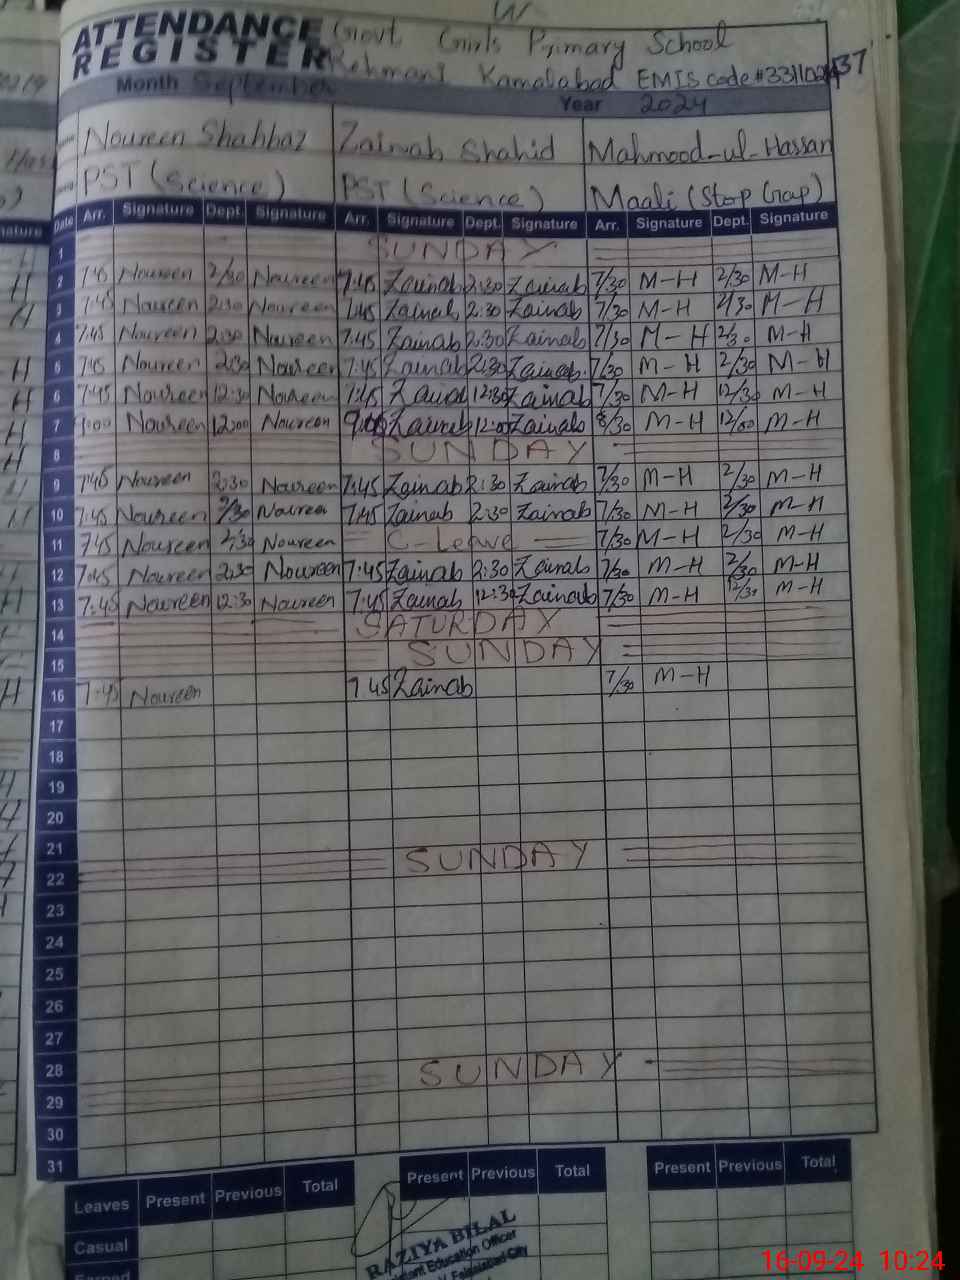 ATTENDANCE Govt. Girls Primary School
REGISTER Rehmani Kamalabad EMIS code#
37
Month September
Year 2024
Noureen Shahbaz Zainab Shahid Mahmood-ul-Hassan
PST (Science) PST (Science) Maali (Stop Gap)
Date Arr. Signature Dept. Signature Arr. Signature Dept. Signature Arr. Signature Dept. Signature
1 SUNDAY
2 7:45 Noureen 2/30 Noureen 7:45 Zainab 2:30 Zainab 7/30 M-H 2/30 M-H
3 7:45 Noureen 2:30 Noureen 7:45 Zainab 2:30 Zainab 7/30 M-H 2/30 M-H
4 7:45 Noureen 2:30 Noureen 7:45 Zainab 2:30 Zainab 7/30 M-H 2/30 M-H
5 7:45 Noureen 2:30 Noureen 7:45 Zainab 2:30 Zainab 7/30 M-H 2/30 M-H
6 7:45 Noureen 12:30 Noureen 7:45 Zainab 12:30 Zainab 7/30 M-H 12/30 M-H
7 9:00 Noureen 12:00 Noureen 9:00 Zainab 12:00 Zainab 8/30 M-H 12/00 M-H
8 SUNDAY
9 7:45 Noureen 2:30 Noureen 7:45 Zainab 2:30 Zainab 7/30 M-H 2/30 M-H
10 7:45 Noureen 2/30 Noureen 7:45 Zainab 2:30 Zainab 7/30 M-H 2/30 M-H
11 7:45 Noureen 2:30 Noureen C-Leave 7/30 M-H 2/30 M-H
12 7:45 Noureen 2:30 Noureen 7:45 Zainab 2:30 Zainab 7/30 M-H 2/30 M-H
13 7:45 Noureen 12:30 Noureen 7:45 Zainab 12:30 Zainab 7/30 M-H 12/30 M-H
14 SATURDAY
15 SUNDAY
16 7:45 Noureen 7:45 Zainab 7/30 M-H
17
18
19
20
21 SUNDAY
22
23
24
25
26
27
28 SUNDAY
29
30
31
Leaves Present Previous Total Present Previous Total Present Previous Total
Casual
RAZIYA BILAL
Education Officer
Faisalabad City
16-09-24 10:24